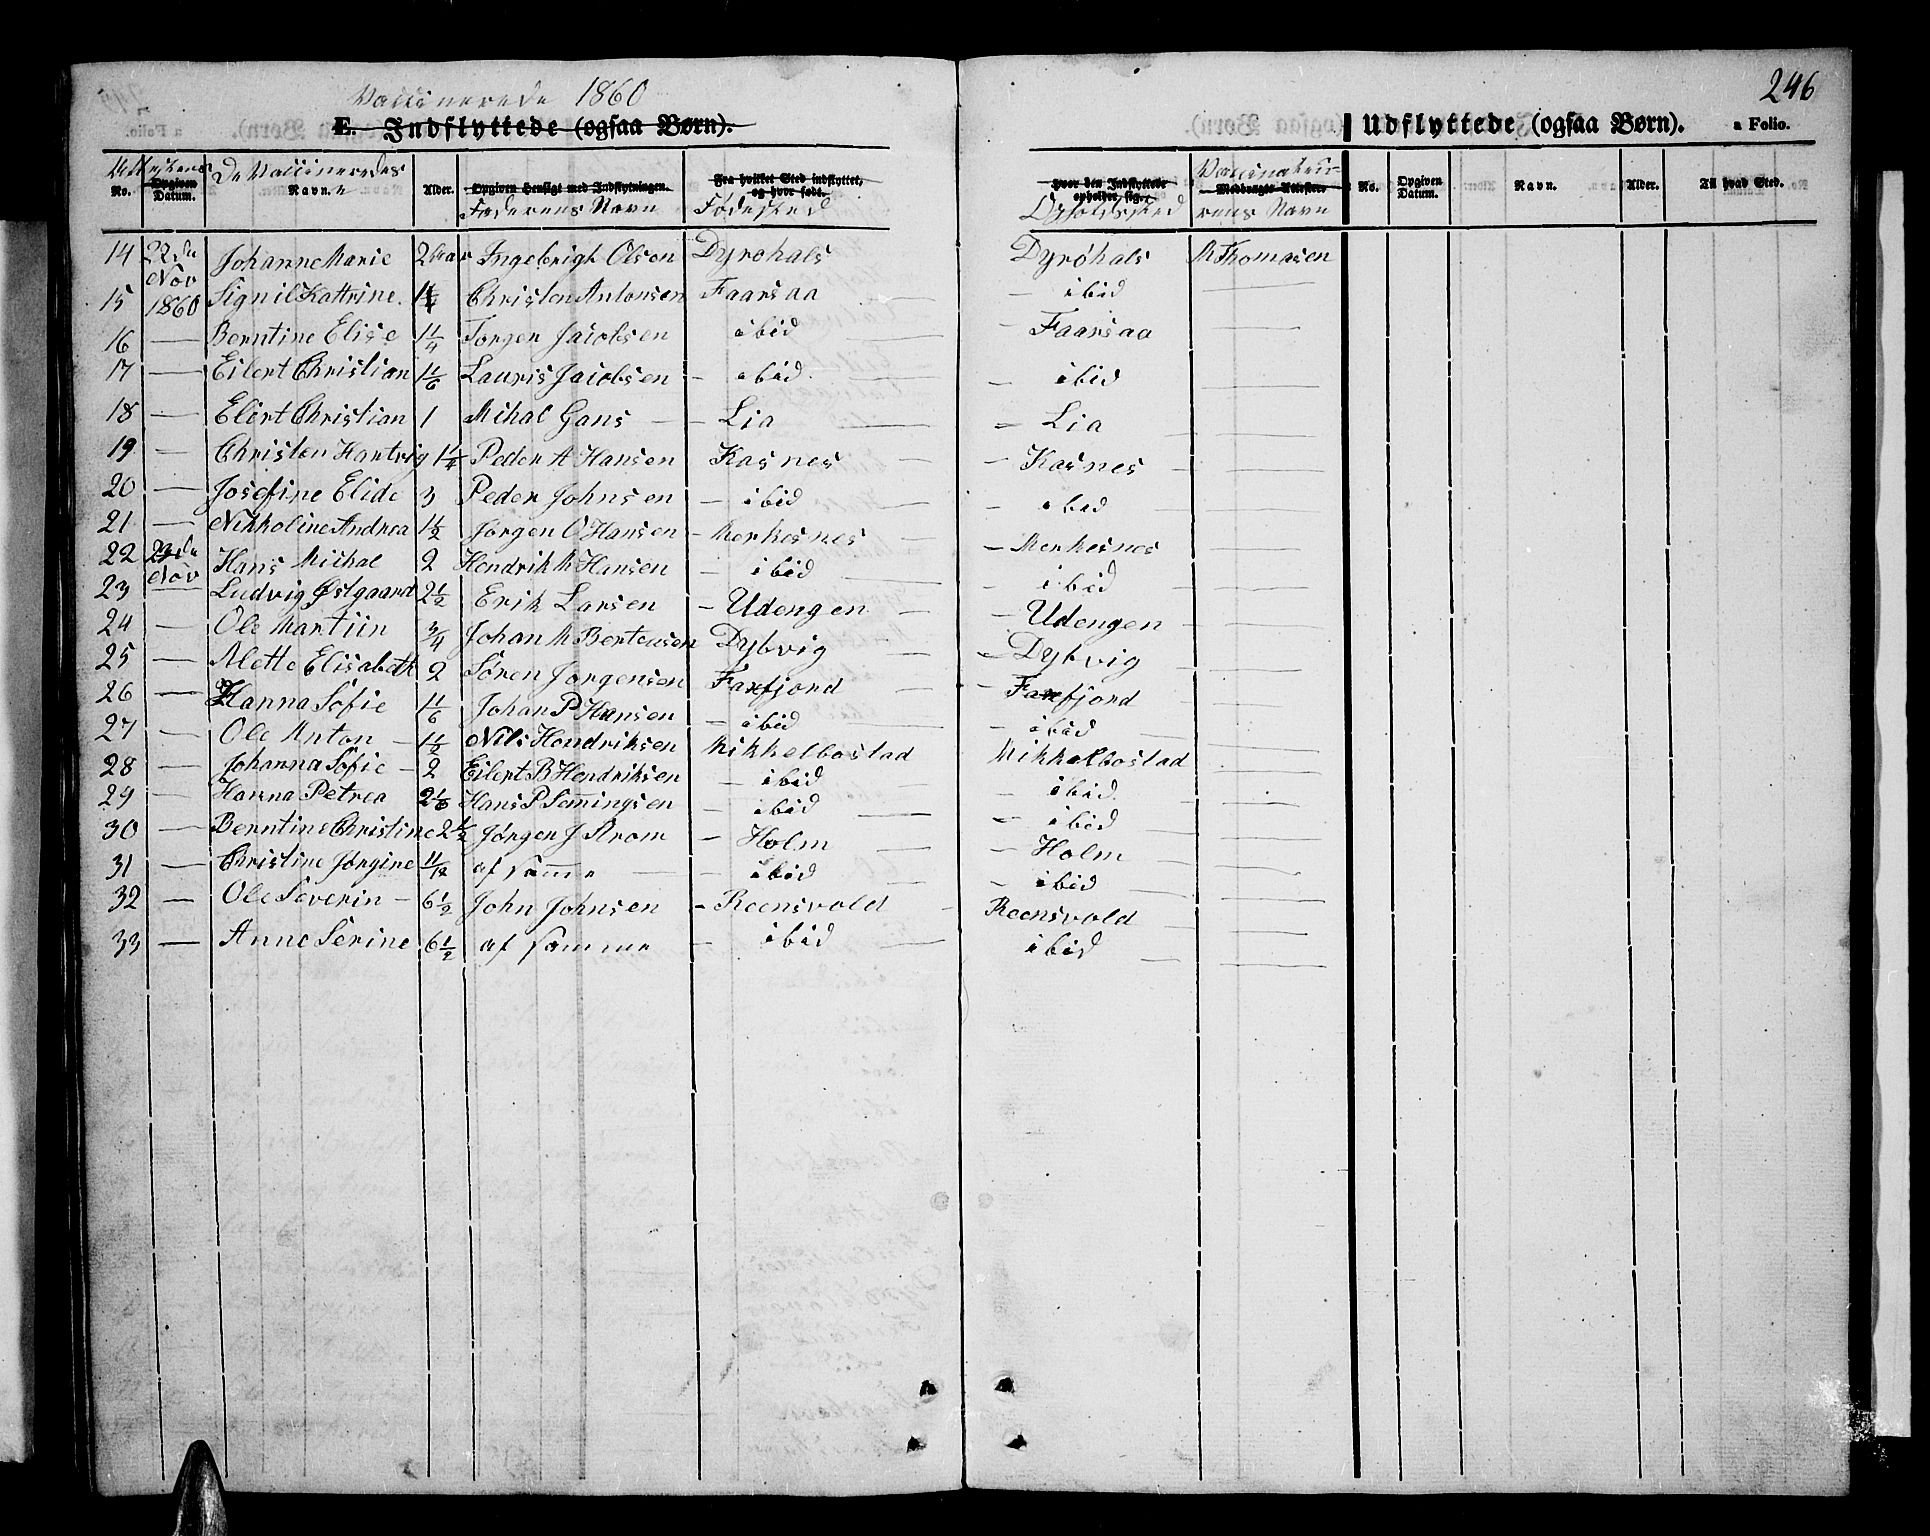 Vaccinerede 1860
E. Indflyttede (ogsaa Børn).
No. Opgiven Datum. De Vaccineredes Navn. Alder. Opgiven Hensigt med Indflytningen. Faderens Navn Fra hvilket Sted indflyttet, og hvor født. Fødested
14 22de Nov 1860 Johanne Marie 2 Aar Ingebrigt Olsen Dyrøhals
15 Signil Kattrine 1 1/4 Christen Antonsen Faarsaa
16 — Berntine Elise 1 1/4 Torger Jacobsen ibid
17 — Eilert Christian 1 1/6 Lauris Jacobsen – ibid
18 — Elert Christian 1 Mihal Gans – Lia
19 — Christen Hartvig 1 1/4 Peder A Hansen Kasnes
20 — Josefine Elide 3 Peder Johnsen – ibid
21 — Nikkoline Andrea 1 1/2 Jørgen O Hansen – Merkesnes
22 23de Nov Hans Michal 2 Hendrik M Hansen – ibid
23 — Ludvig Østgaard 2 1/2 Erik Larsen – Udengen
24 — Ole Martiin 3/4 Johan M Bertensen Dybvig
25 — Alette Elisabeth 2 Sören Jørgensen Faxfjord
26 — Hanna Sofie 1 1/6 Johan P Hansen – ibid
27 — Ole Anton – 1 1/2 Nils Hendriksen Mikkelbostad
28 — Johanna Sofie – 2 Eilert B Hendriksen – ibid
29 — Hanna Petrea 2 1/6 Hans P Semingsen – ibid
30 — Berntine Christine 2 1/2 Jørgen J Strom – Holm
31 — Christine Jørgine 11/12 af samme – ibid
32 — Ole Severin – 6 1/2 John Johnsen – Reensvold
33 — Anne Serine 6 1/2 af samme – ibid
246
Udflyttede (ogsaa Børn). a Folio.
Hvor den Indflyttede opholder sig. Opholdssted Medbragte Attester. Vaccinateurens Navn No. Opgiven Datum. Navn. Alder. Til hvad Sted.
Dyrøhals M Thomasen
– ibid
– Faarsaa
– ibid
– Lia
– Kasnes
– ibid
– Merkesnes
– ibid
– Udengen
– Dybvig
– Faxfjord
– ibid
Mikkelbostad
– ibid
– ibid
– Holm
– ibid
Reensvold
ibid